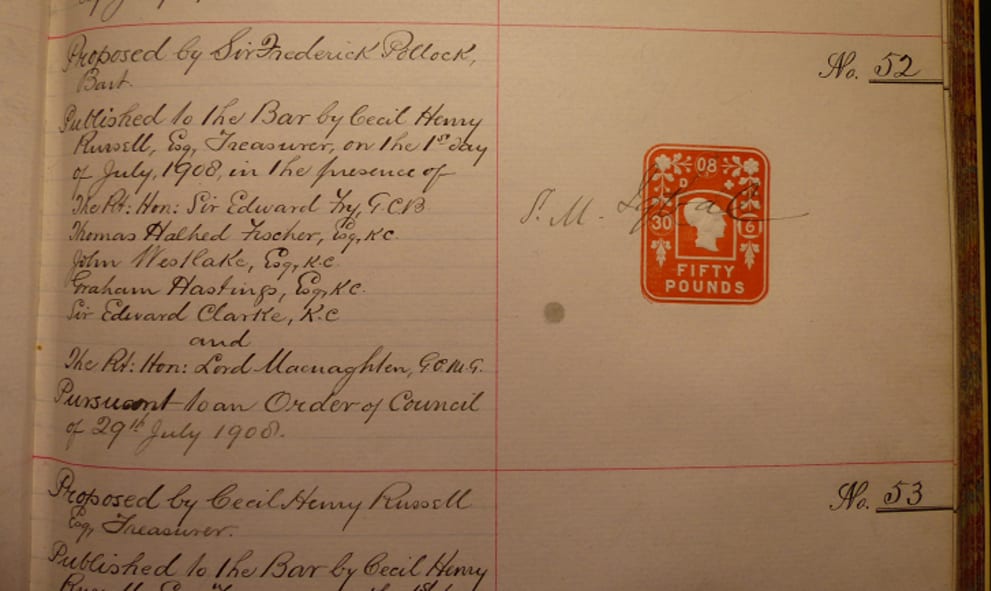 Proposed by Sir Frederick Pollock,
Bart.
Published to the Bar by Cecil Henry
Russell, Esq, Treasurer, on the 1st day
of July, 1908, in the presence of
The Rt: Hon: Sir Edward Fry, G.C.B.
Thomas Halhed Fischer, Esq, K.C.
John Westlake, Esq, K.C.
Graham Hastings, Esq, K.C.
Sir Edward Clarke, K.C
and
The Rt: Hon: Lord Macnaghten, G.C.M.G.
Pursuant to an Order of Council
of 29th July 1908.
No. 52
S. M. Iqbal
08
D
30
6
FIFTY
POUNDS
Proposed by Cecil Henry Russell
Esq, Treasurer.
No. 53
Published to the Bar by Cecil Henry